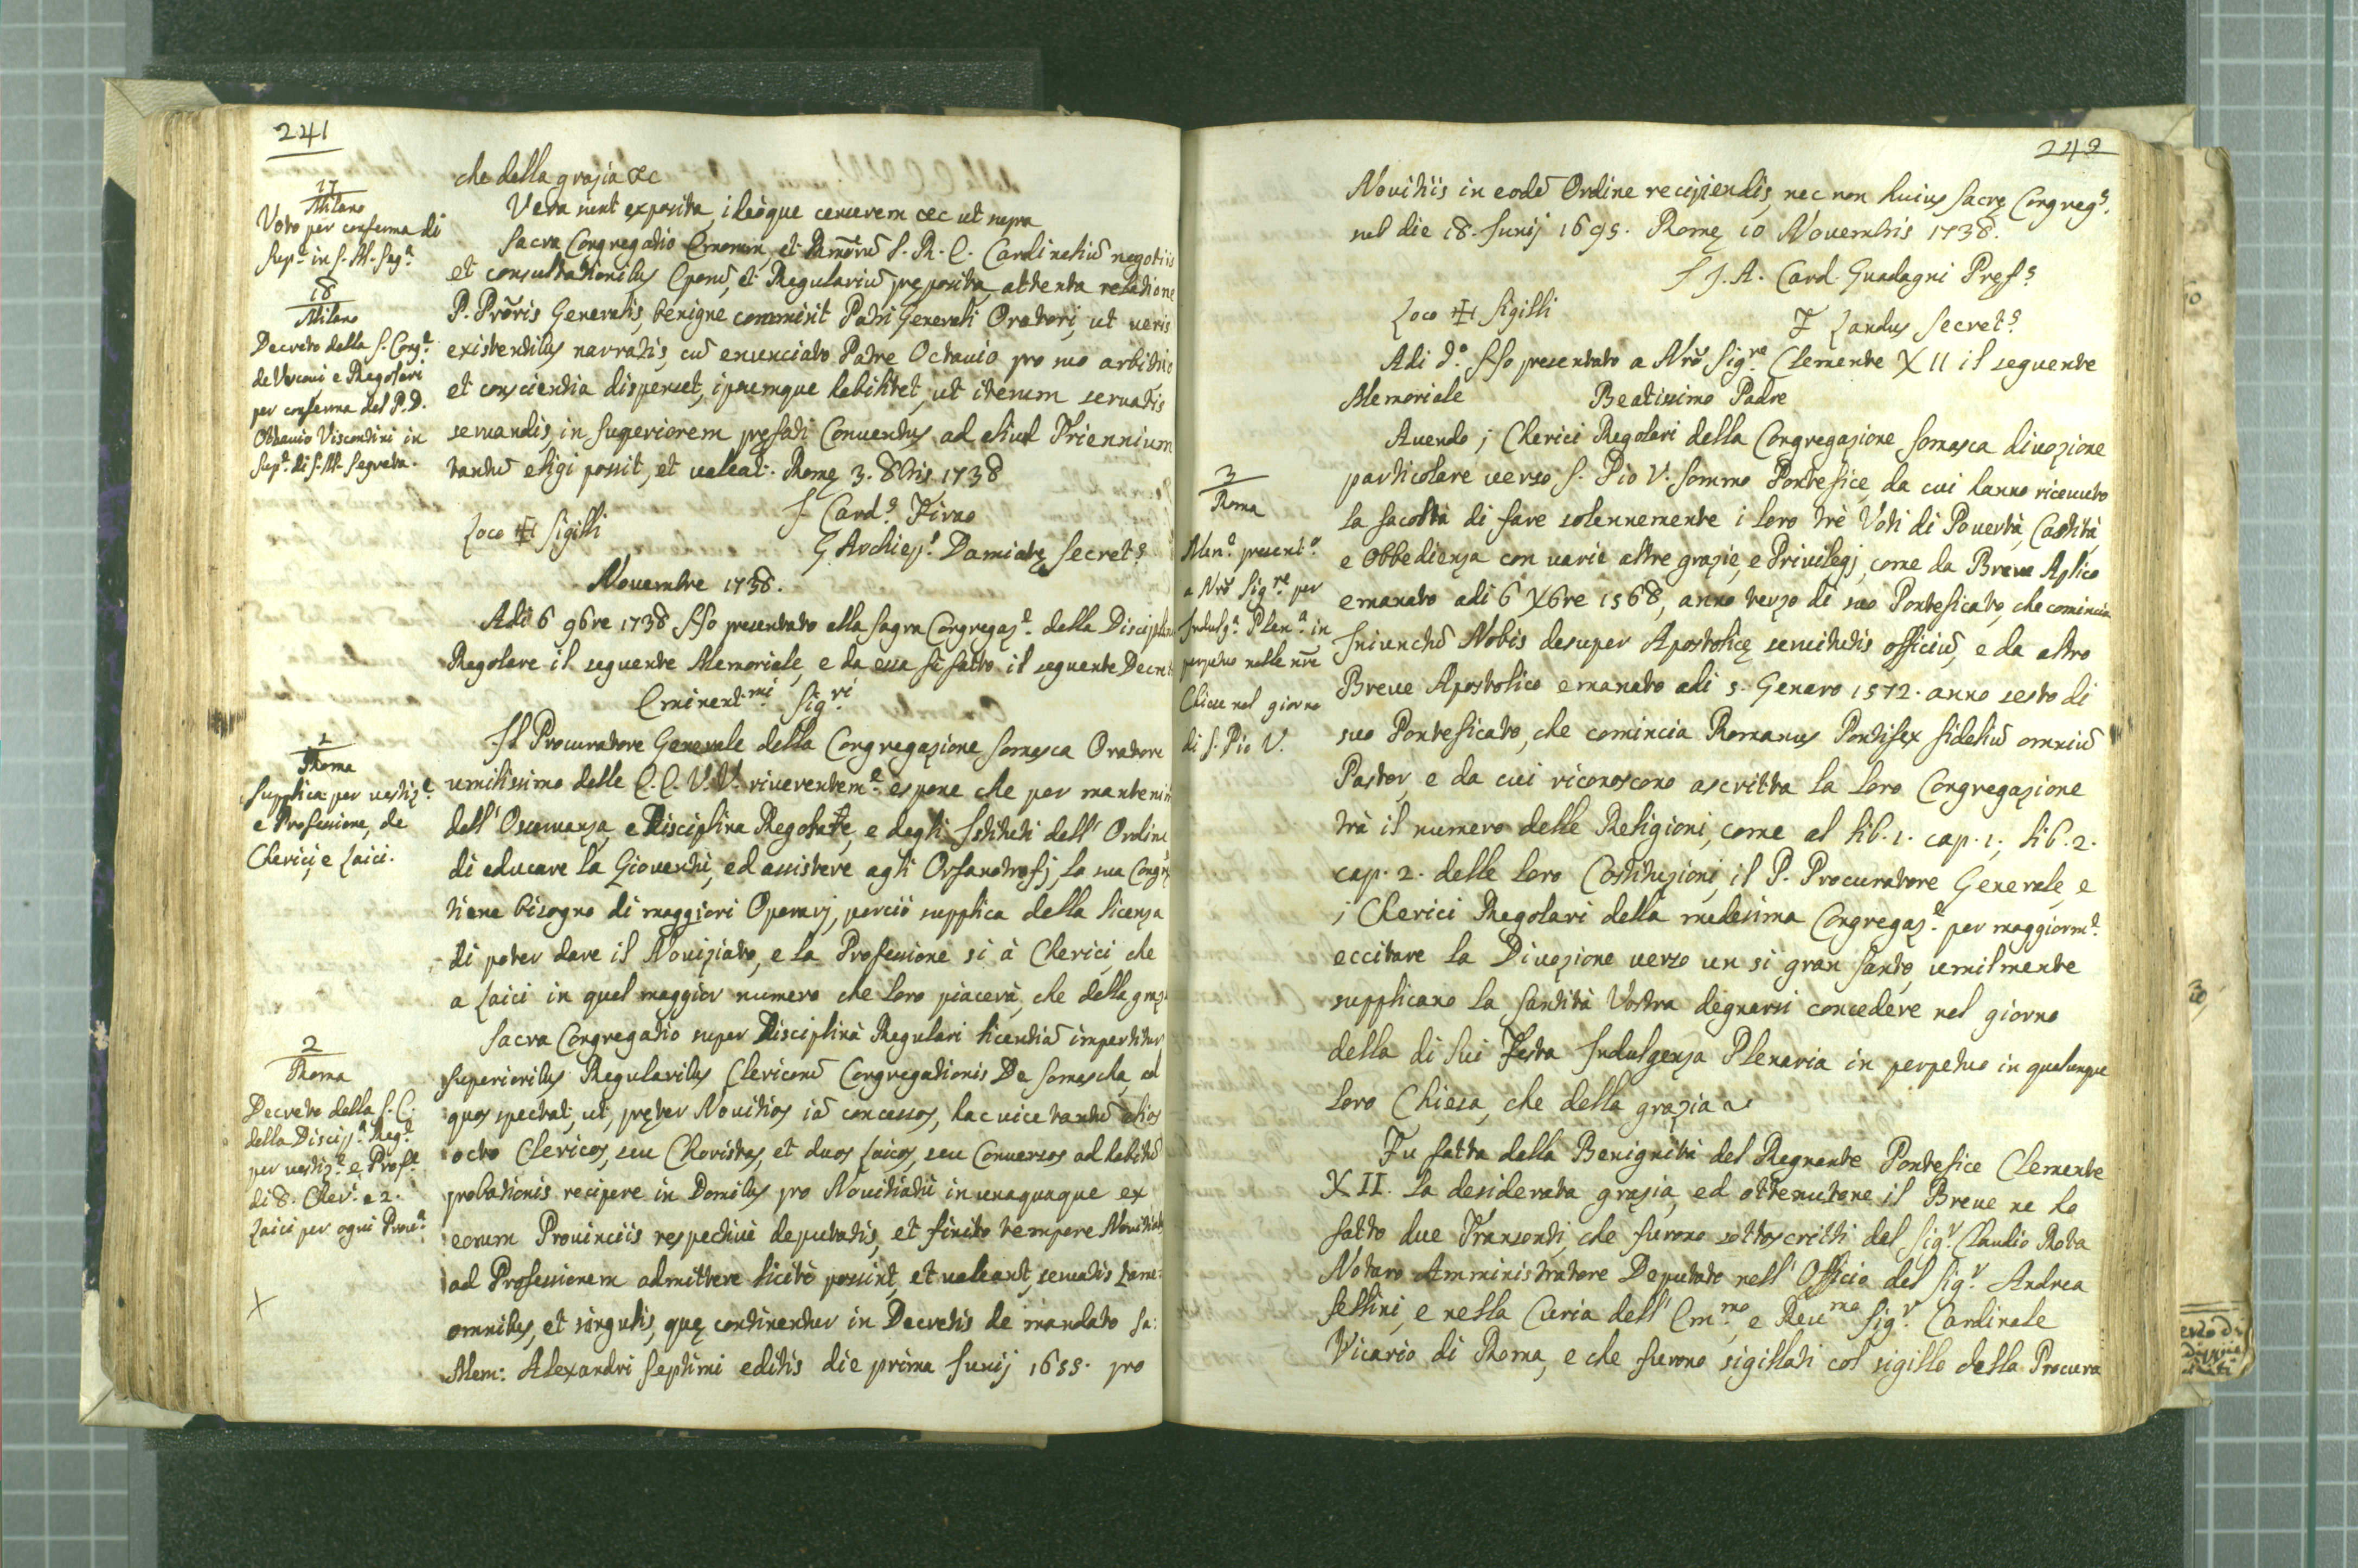 241
17
Milano
Voto per conferma di
Sup.ᵉ in S. M. Seg.ᵃ
18
Milano
Decreto della S. Cong.ᵉ
de Vescovi e Regolari
per conferma del P. D.
Ottavio Viscontini in
Sup.ᵉ di S. M. Segreta.
che della grazia &c
Vera sunt exposita, ideoque censerem &c ut supra
Sacra Congregatio Emorum, et Rmōrū S. R. E. Cardinaliū negotiis
et consultationibus Eporū, et Regulariū pręposita, attenta relatione
P. Prōris Generalis, benigne commisit Patri Generali Oratori, ut veris
existentibus narratis, cū enunciato Patre Octavio pro suo arbitrio
et conscientia dispenset, ipsumque habilitet, ut iterum servatis
servandis, in Superiorem pręfati Conventus ad aliud Triennium
tantū eligi possit, et valeat. Romę 3. 8bris 1738
F Card.ˢ Firao
Loco ✠ Sigilli
G. Archiep.ˢ Damiatę Secret.ˢ
Novembre 1738.
Adi 6 9bre 1738 Ho presentato alla Sagra Congregaz.ᵉ della Disciplina
Regolare il seguente Memoriale, e da essa fù fatto il seguente Decret
Eminent.ᵐⁱ Sig.ʳⁱ
2
Roma
Supplica per vestiz.ᵉ
e Professione, de
Clerici, e Laici.
Il Procuratore Generale della Congregazione Somasca Oratore
umilissimo delle E. E. V. V. riverentem.ᵉ espone che per manteni
dell' Osservanza, e Disciplina Regolare, e degli Istituti dell' Ordine
di educare la Gioventù, ed assistere agli Orfanotrofj, la sua Congrᵉ
tiene bisogno di maggiori Operarj, perciò supplica della licenza
di poter dare il Noviziato, e la Professione si à Clerici, che
a Laici in quel maggior numero che loro piacerà, che della graz.
2
Roma
Decreto della S. C.
della Discip.ᵃ Reg.ᵉ
per vestiz.ᵉ e Prof.ᵉ
di 8. Cler.ⁱ e 2.
Laici per ogni Prov.ᵃ
X
Sacra Congregatio super Disciplinà Regulari licentiā impertitur
Superioribus Regularibus Clericorū Congregationis De Somascha, ad
quos spectat, ut, pręter Novitios iā concessos, hac vice tantū alios
octo Clericos, seu Choristas, et duos Laicos, seu Conversos ad habitū
probationis recipere in Domibus pro Novitiatū in unaquaque ex
eorum Provinciis respectivè deputatis, et finito tempore Novitiatus
ad Professionem admittere licitè possint, et valeant, servatis tame:
omnibus, et singulis, quę continentur in Decretis de mandato Sa:
Mem: Alexandri Septimi editis die prima Junij 1655. pro
242
Novitiis in eodē Ordine recipiendis, nec non huius Sacrę Congreg.ˢ
sub die 18. Junij 1695. Romę 10 Novembris 1738.
F J. A. Card. Guadagni Pręf.ˢ
Loco ✠ Sigilli
F Landus Secret.ˢ
Adi d.° Ho presentato a Nrō Sig.ʳᵉ Clemente XII il seguente
Memoriale
Beatissimo Padre
3
Roma
Mem.ᵉ present.°
a Nrō Sig.ʳᵉ per
Indulg.ᵃ Plen.ᵃ in
perpetuo nelle nrē
Chiese nel giorno
di S. Pio V.
Avendo i Clerici Regolari della Congregazione Somasca divozione
particolare verso S. Pio V. Sommo Pontefice, da cui hanno ricevuto
la facoltà di fare solennemente i loro trè Voti di Povertà, Castità,
e Obbedienza con varie altre grazie, e Privilegj, come da Breve Aplico
emanato adi 6 Xbre 1568, anno terzo di suo Pontificato, che comincia
Iniunctū Nobis desuper Apostolicę servitutis officiū, e da altro
Breve Apostolico emanato adi 5. Genaro 1572. anno sesto di
suo Pontificato, che comincia Romanus Pontifex fideliū omniū
Pastor, e da cui riconoscono ascritta la loro Congregazione
trà il numero delle Religioni, come al lib. 1. cap. 1, lib. 2.
cap. 2. delle loro Costituzioni, il P. Procuratore Generale, e
i Clerici Regolari della medesima Congregaz.ᵉ per maggiorm.ᵉ
eccitare la Divozione verso un si gran Santo, umilmente
supplicano la Santità Vostra degnarsi concedere nel giorno
della di lui Festa Indulgenza Plenaria in perpetuo in qualunque
loro Chiesa, che della grazia ~
Fu fatta dalla Benignità del Regnante Pontefice Clemente
XII. la desiderata grazia, ed ottenutone il Breve ne ho
fatto due Transonti, che furono sottoscritti dal Sig.ʳ Claudio Rota
Notaro Amministratore Deputato nell' Officio del Sig.ʳ Andrea
Sellini, e nella Curia dell' Em.ᵐᵒ, e Rev.ᵐᵒ Sig.ʳ Cardinale
Vicario di Roma, e che furono sigillati col sigillo della Procura